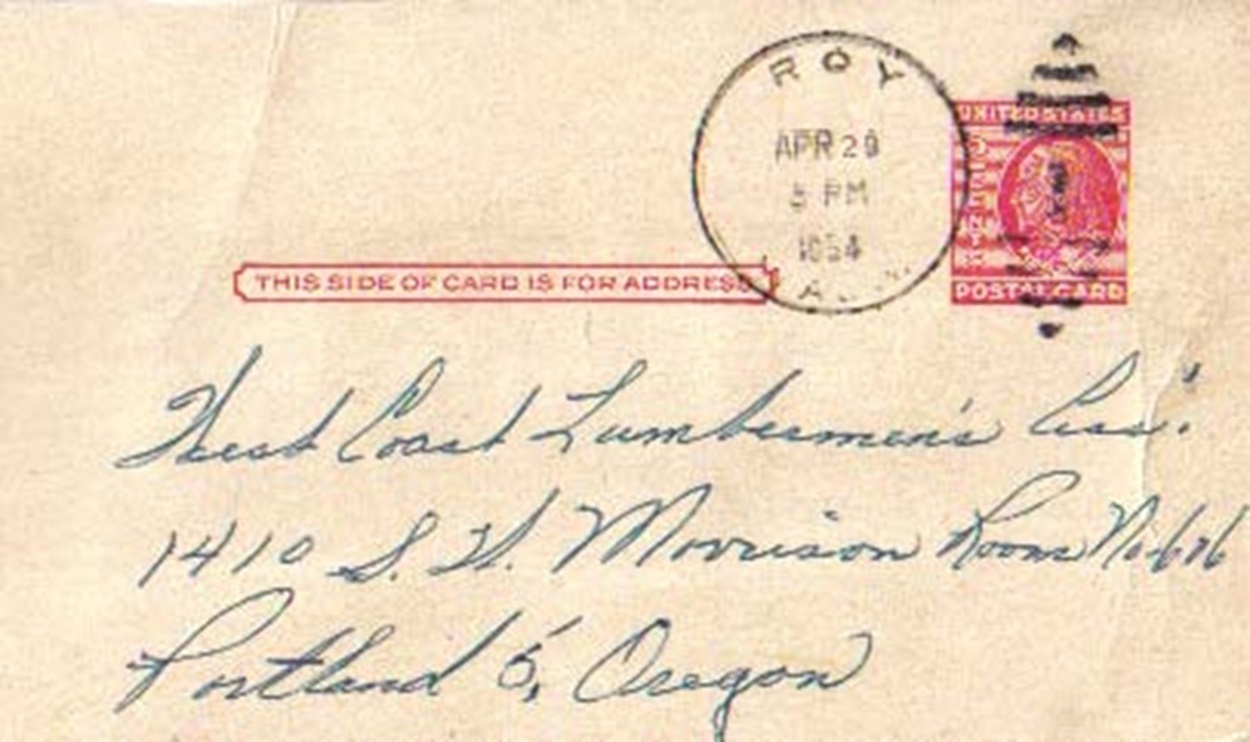 ROY
APR 29
PM
1954
UNITED STATES
POSTAL CARD
THIS SIDE OF CARD IS FOR ADDRESS
West Coast Lumbermen's Ass'
1410 S. W. Morrison Room No.
Portland 5, Oregon